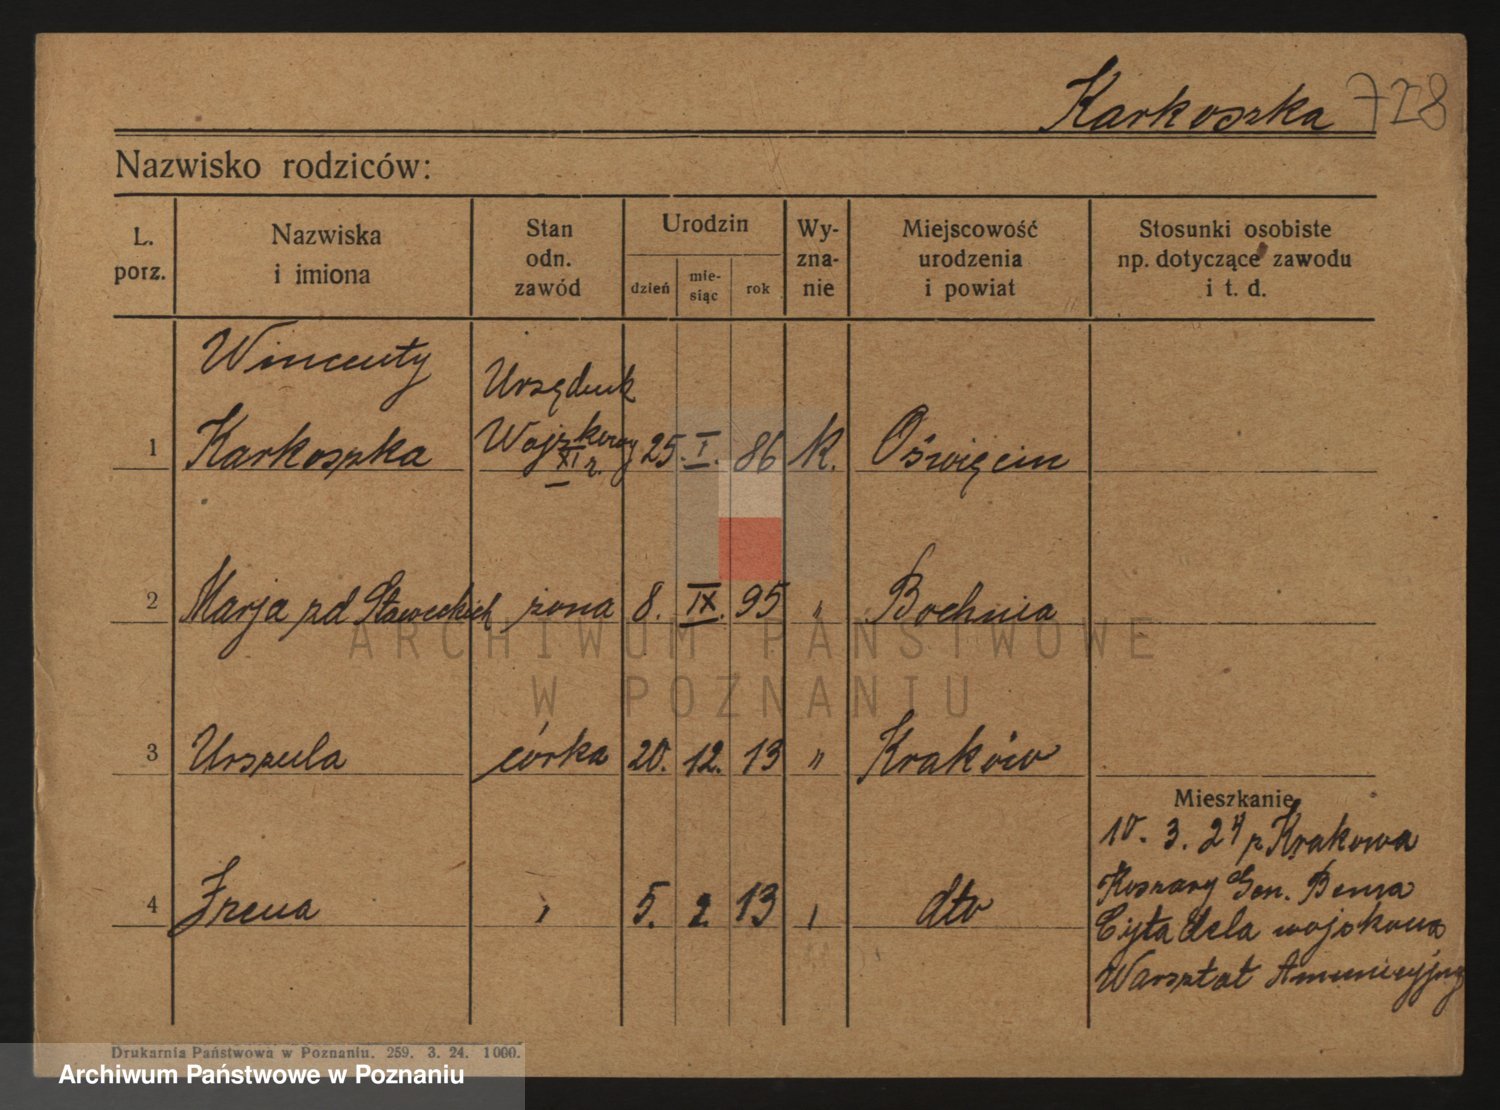 Karkoszka 728
Nazwisko rodziców:
L. porz.
Nazwiska i imiona
Stan odn. zawód
Urodzin
dzień
mie-siąc
rok
Wy-zna-nie
Miejscowość urodzenia i powiat
Stosunki osobiste np. dotyczące zawodu i t. d.
Wincenty
Urzędnik
1 Karkoszka Wojskowy 25. I. 86 K. Oświęcim
XI r.
2 Marja zd Staweckich żona 8. IX. 95 „ Bochnia
ARCHIWUM PAŃSTWOWE
W POZNANIU
3 Urszula córka 20. 12. 13 " Kraków
Mieszkanie
10. 3. 24 z Krakowa
Koszary Gen. Bema
4 Irena , 5. 2. 13 , dto
Cytadela wojskowa
Warsztat Amunicyjny
Drukarnia Państwowa w Poznaniu. 259. 3. 24. 1000.
Archiwum Państwowe w Poznaniu